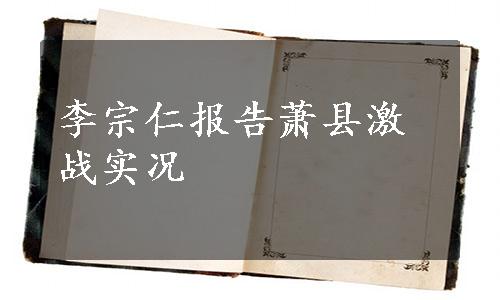 李宗仁报告萧县激
战实况